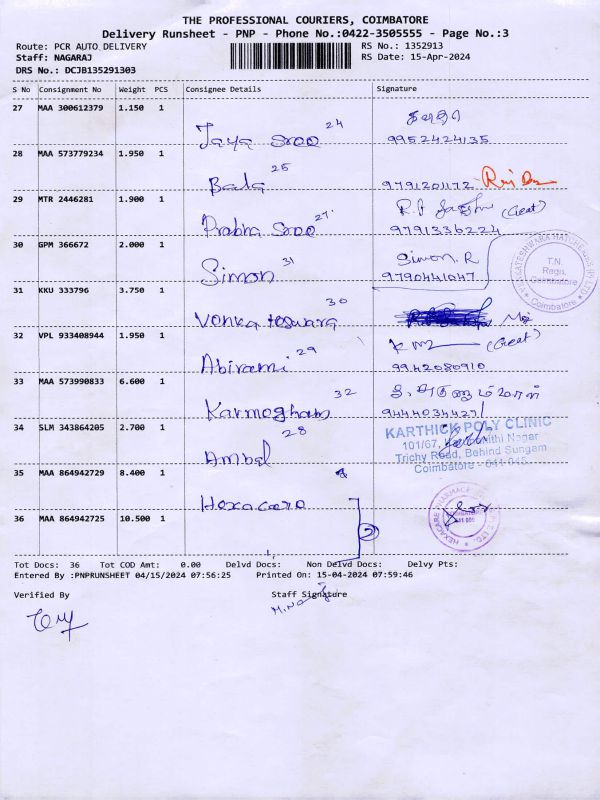 THE PROFESSIONAL COURIERS, COIMBATORE
Delivery Runsheet - PNP - Phone No.:0422-3505555 - Page No.:3
Route: PCR AUTO DELIVERY RS No.: 1352913
Staff: NAGARAJ RS Date: 15-Apr-2024
DRS No.: DCJB135291303
S No Consignment No Weight PCS Consignee Details Signature
27 MAA 300612379 1.150 1
Jaya Sroo 24 9952424135
28 MAA 573779234 1.950 1
Bala 25 9791201172
29 MTR 2446281 1.900 1
Prabha Sroo 27 9791336224
30 GPM 366672 2.000 1 Simon. R
Simon 31 9790441047
31 KKU 333796 3.750 1
Venkateswara 30
32 VPL 933408944 1.950 1
Abirami 29 9942080910
33 MAA 573990833 6.600 1
Karmogham 32 9444034427
34 SLM 343864205 2.700 1
Ambal 28
KARTHICK POLY CLINIC
Trichy Road, Behind Sungam
Coimbatore - 641 045.
35 MAA 864942729 8.400 1
Hexacare
36 MAA 864942725 10.500 1
2
Tot Docs: 36 Tot COD Amt: 0.00 Delvd Docs: Non Delvd Docs: Delvy Pts:
Entered By :PNPRUNSHEET 04/15/2024 07:56:25 Printed On: 15-04-2024 07:59:46
Verified By Staff Signature